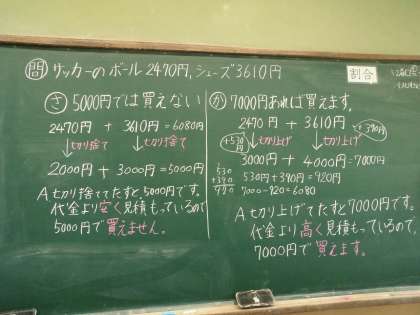 問 サッカーのボール2470円,シューズ3610円
割合
さ 5000円では買えない
2470円 + 3610円=6080円
↓切り捨て ↓切り捨て
2000円 + 3000円=5000円
A 切り捨ててたすと5000円です。
代金より安く見積もっているので
5000円で買えません。
か 7000円あれば買えます。
2470円 + 3610円
+530円 ↓切り上げ ↓切り上げ +390円
3000円 + 4000円=7000円
530
+390
920
530円+390円=920円
7000-920=6080
A 切り上げてたすと7000円です。
代金より高く見積もっているので,
7000円で買えます。